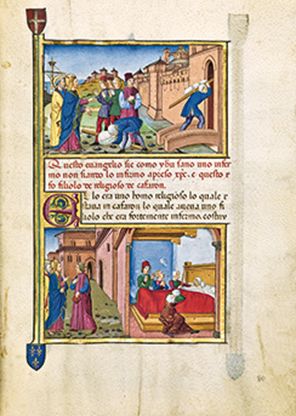 Questo euangelio sie como yhu sano uno infer
mo non siando lo infirmo apreso xpc. e questo e
fo filiolo de religioso de cafaron.
El o era uno homo religioso lo quale e
staua in cafaron lo quale aueua uno fi
olo che era fortemente infermo. costuy